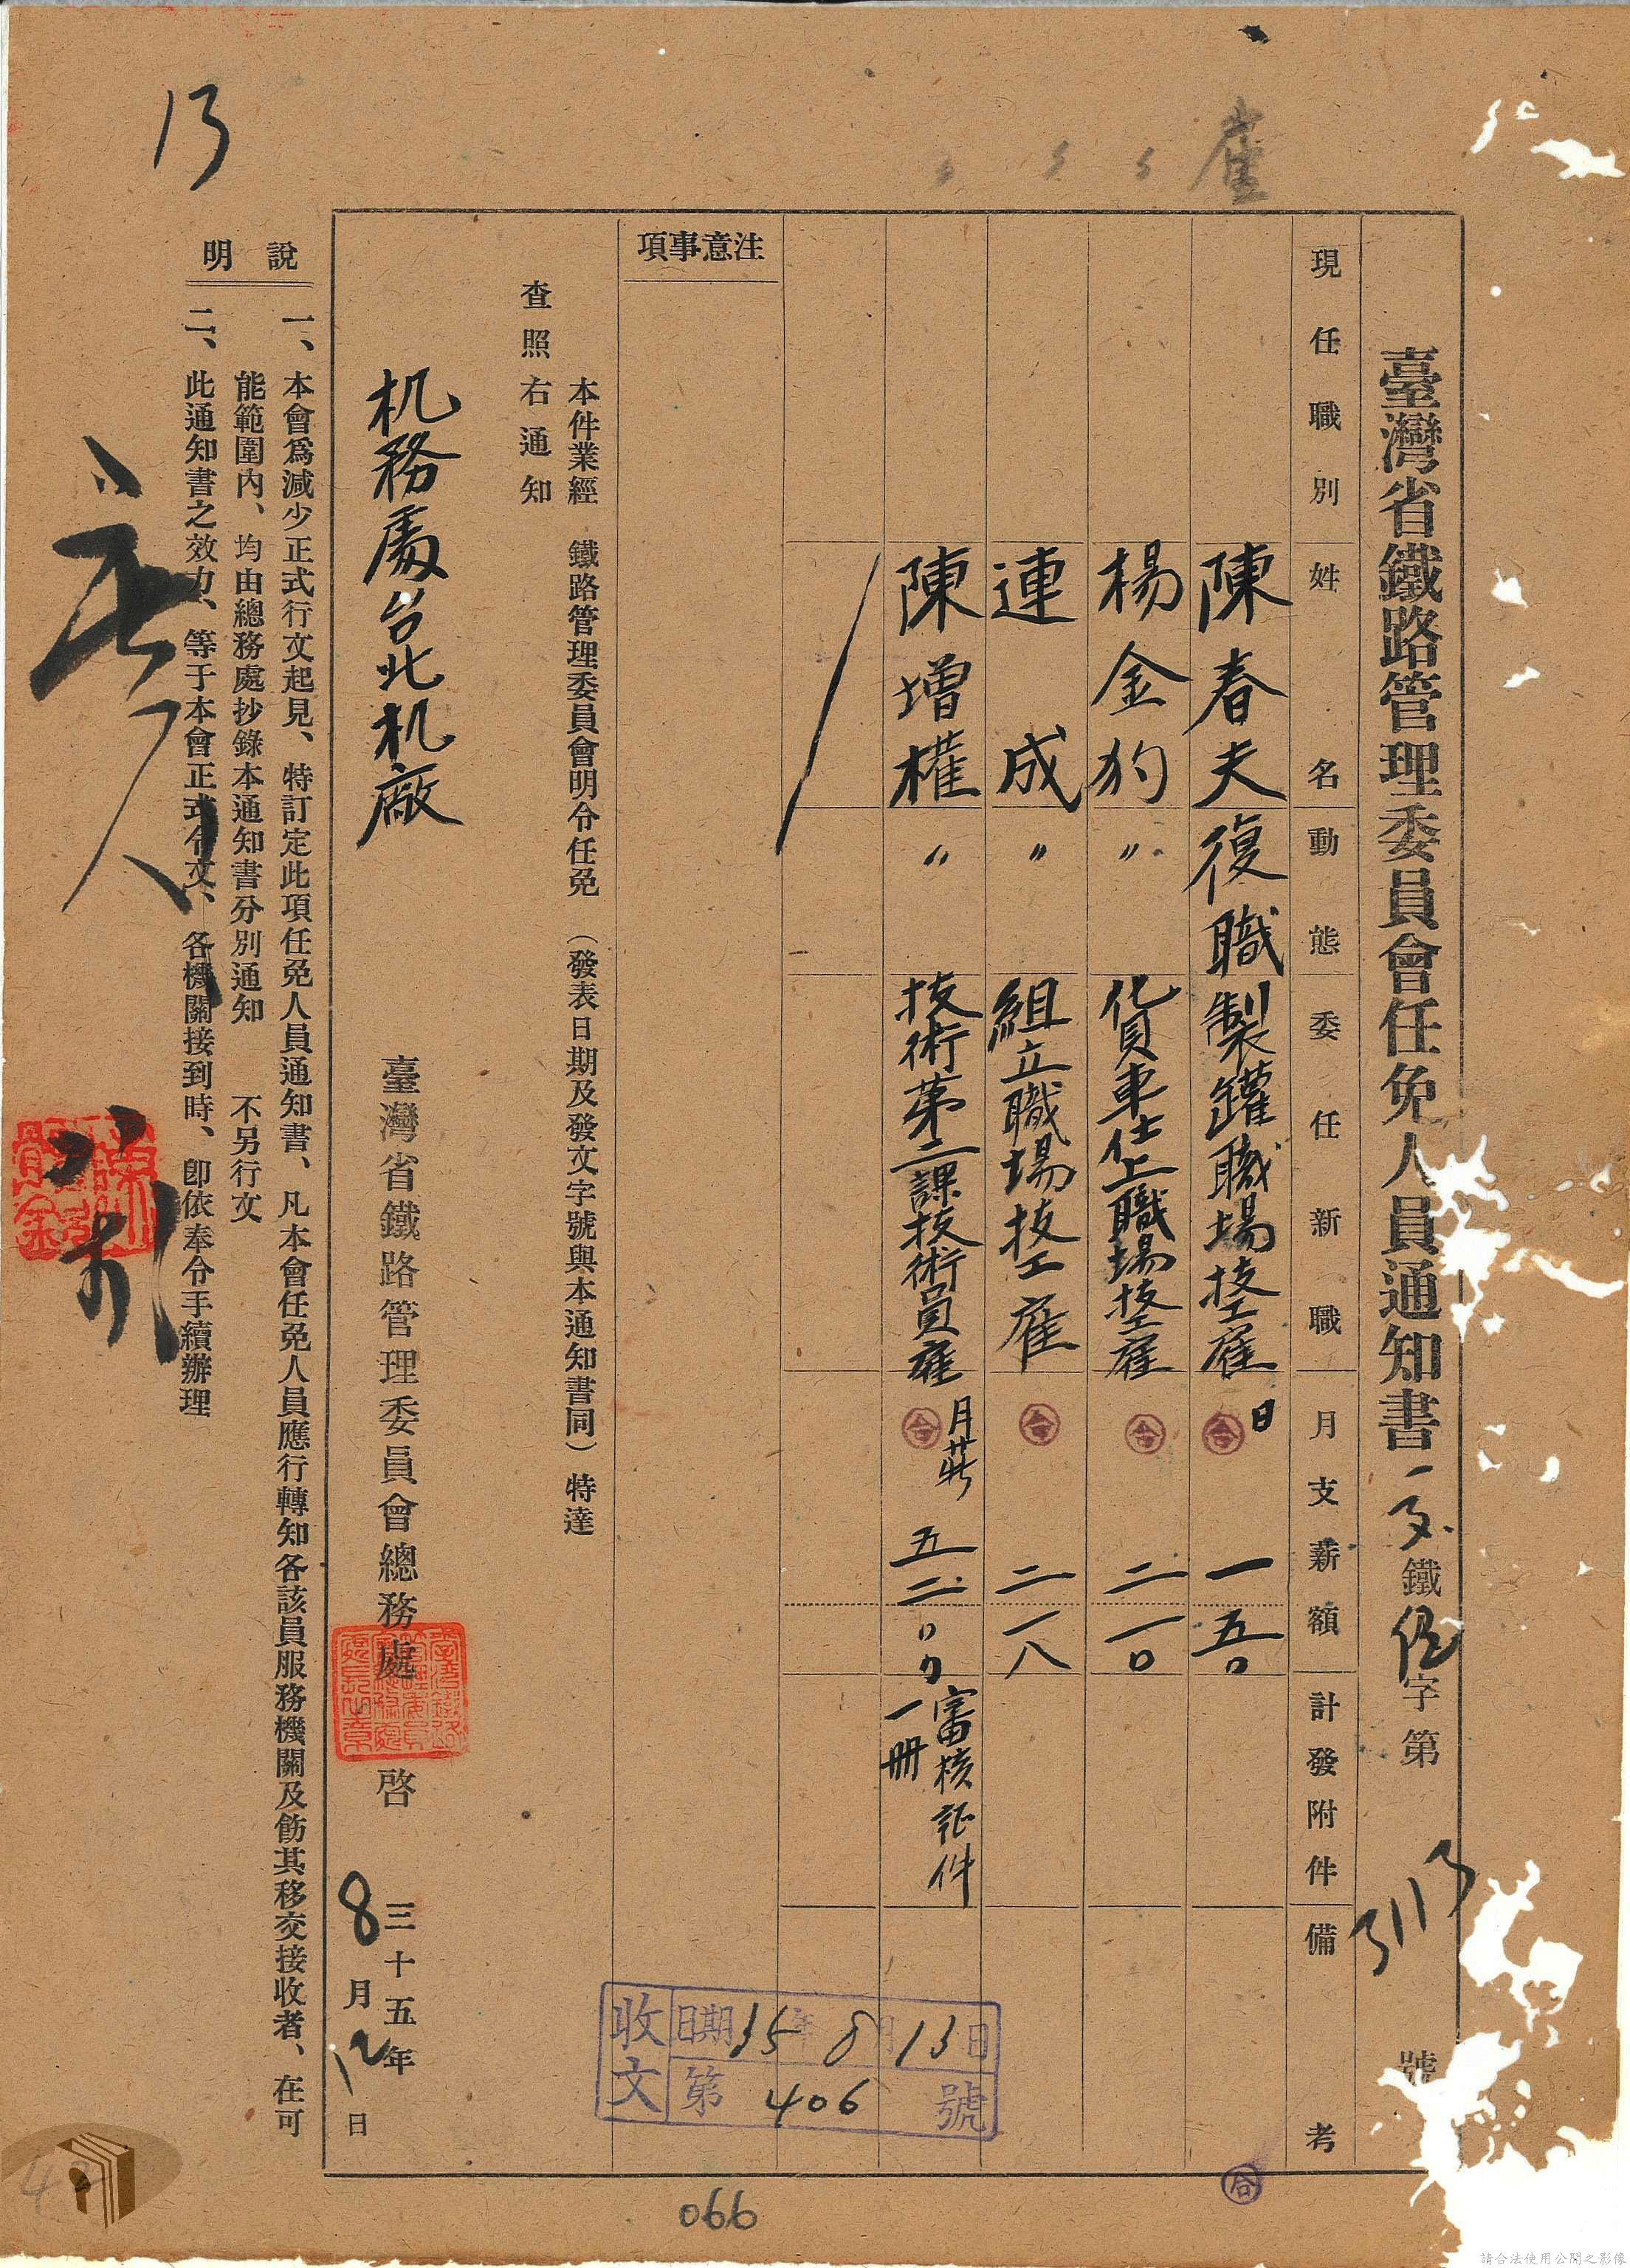 臺灣省鐵路管理委員會任免人員通知書 鐵 字第 3113 號
現任職別 姓名 動態 委任新職 月支薪額 計發附件 備考
陳春夫 復職 製罐職場技工雇 日 一五〇
楊金豹 〃 貨車仕上職場技工雇 二一〇
連成 〃 組立職場技工雇 二一八
陳增權 〃 技術第二課技術員雇 月薪 五二〇〇 審核証件一冊
注意事項
本件業經 鐵路管理委員會明令任免 （發表日期及發文字號與本通知書同）特達
查照 右通知
机務處台北机廠
臺灣省鐵路管理委員會總務處 啓
三十五年
8月12日
說明
一、本會爲減少正式行文起見、特訂定此項任免人員通知書、凡本會任免人員應行轉知各該員服務機關及飭其移交接收者、在可
能範圍內、均由總務處抄錄本通知書分別通知 不另行文
二、此通知書之效力、等于本會正式令文、各機關接到時、卽依奉令手續辦理
收文
日期35年8月13日
第406號
雇
13
066
合
合
合
合
合
請合法使用公開之影像